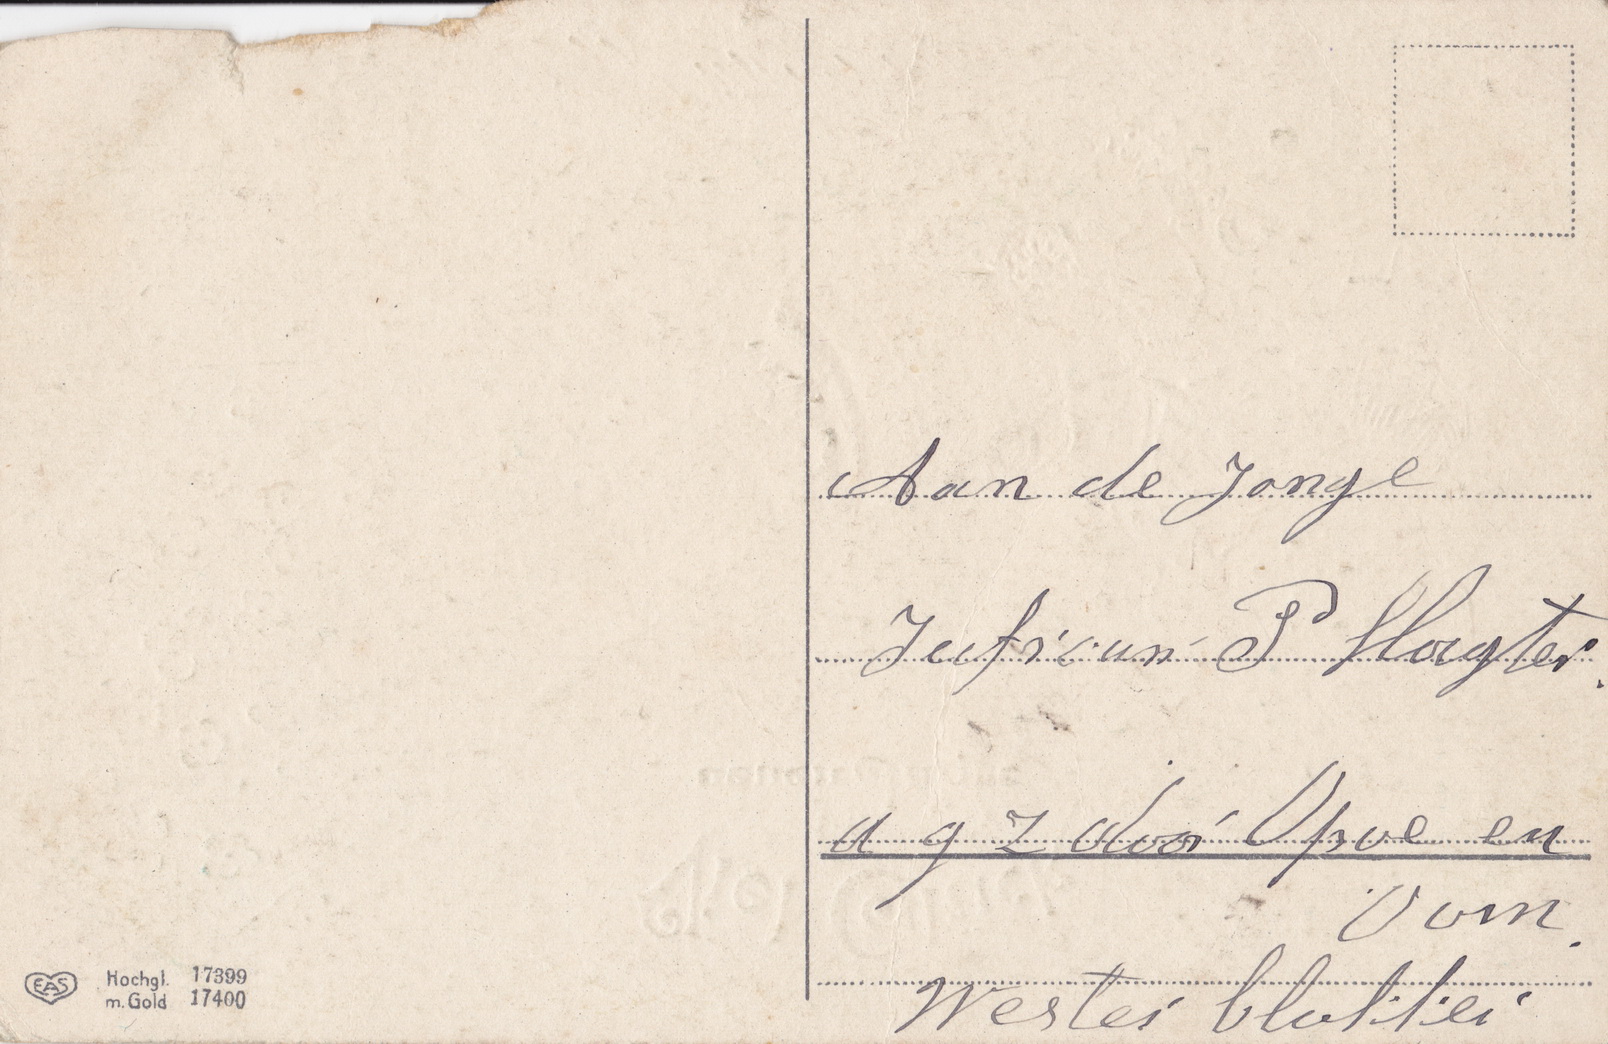 Aan de Jonge
Jufrouw P Slagter.
a g z door Opoe en
Oom.
Wester blokker
EAS
Hochgl. 17399
m. Gold 17400